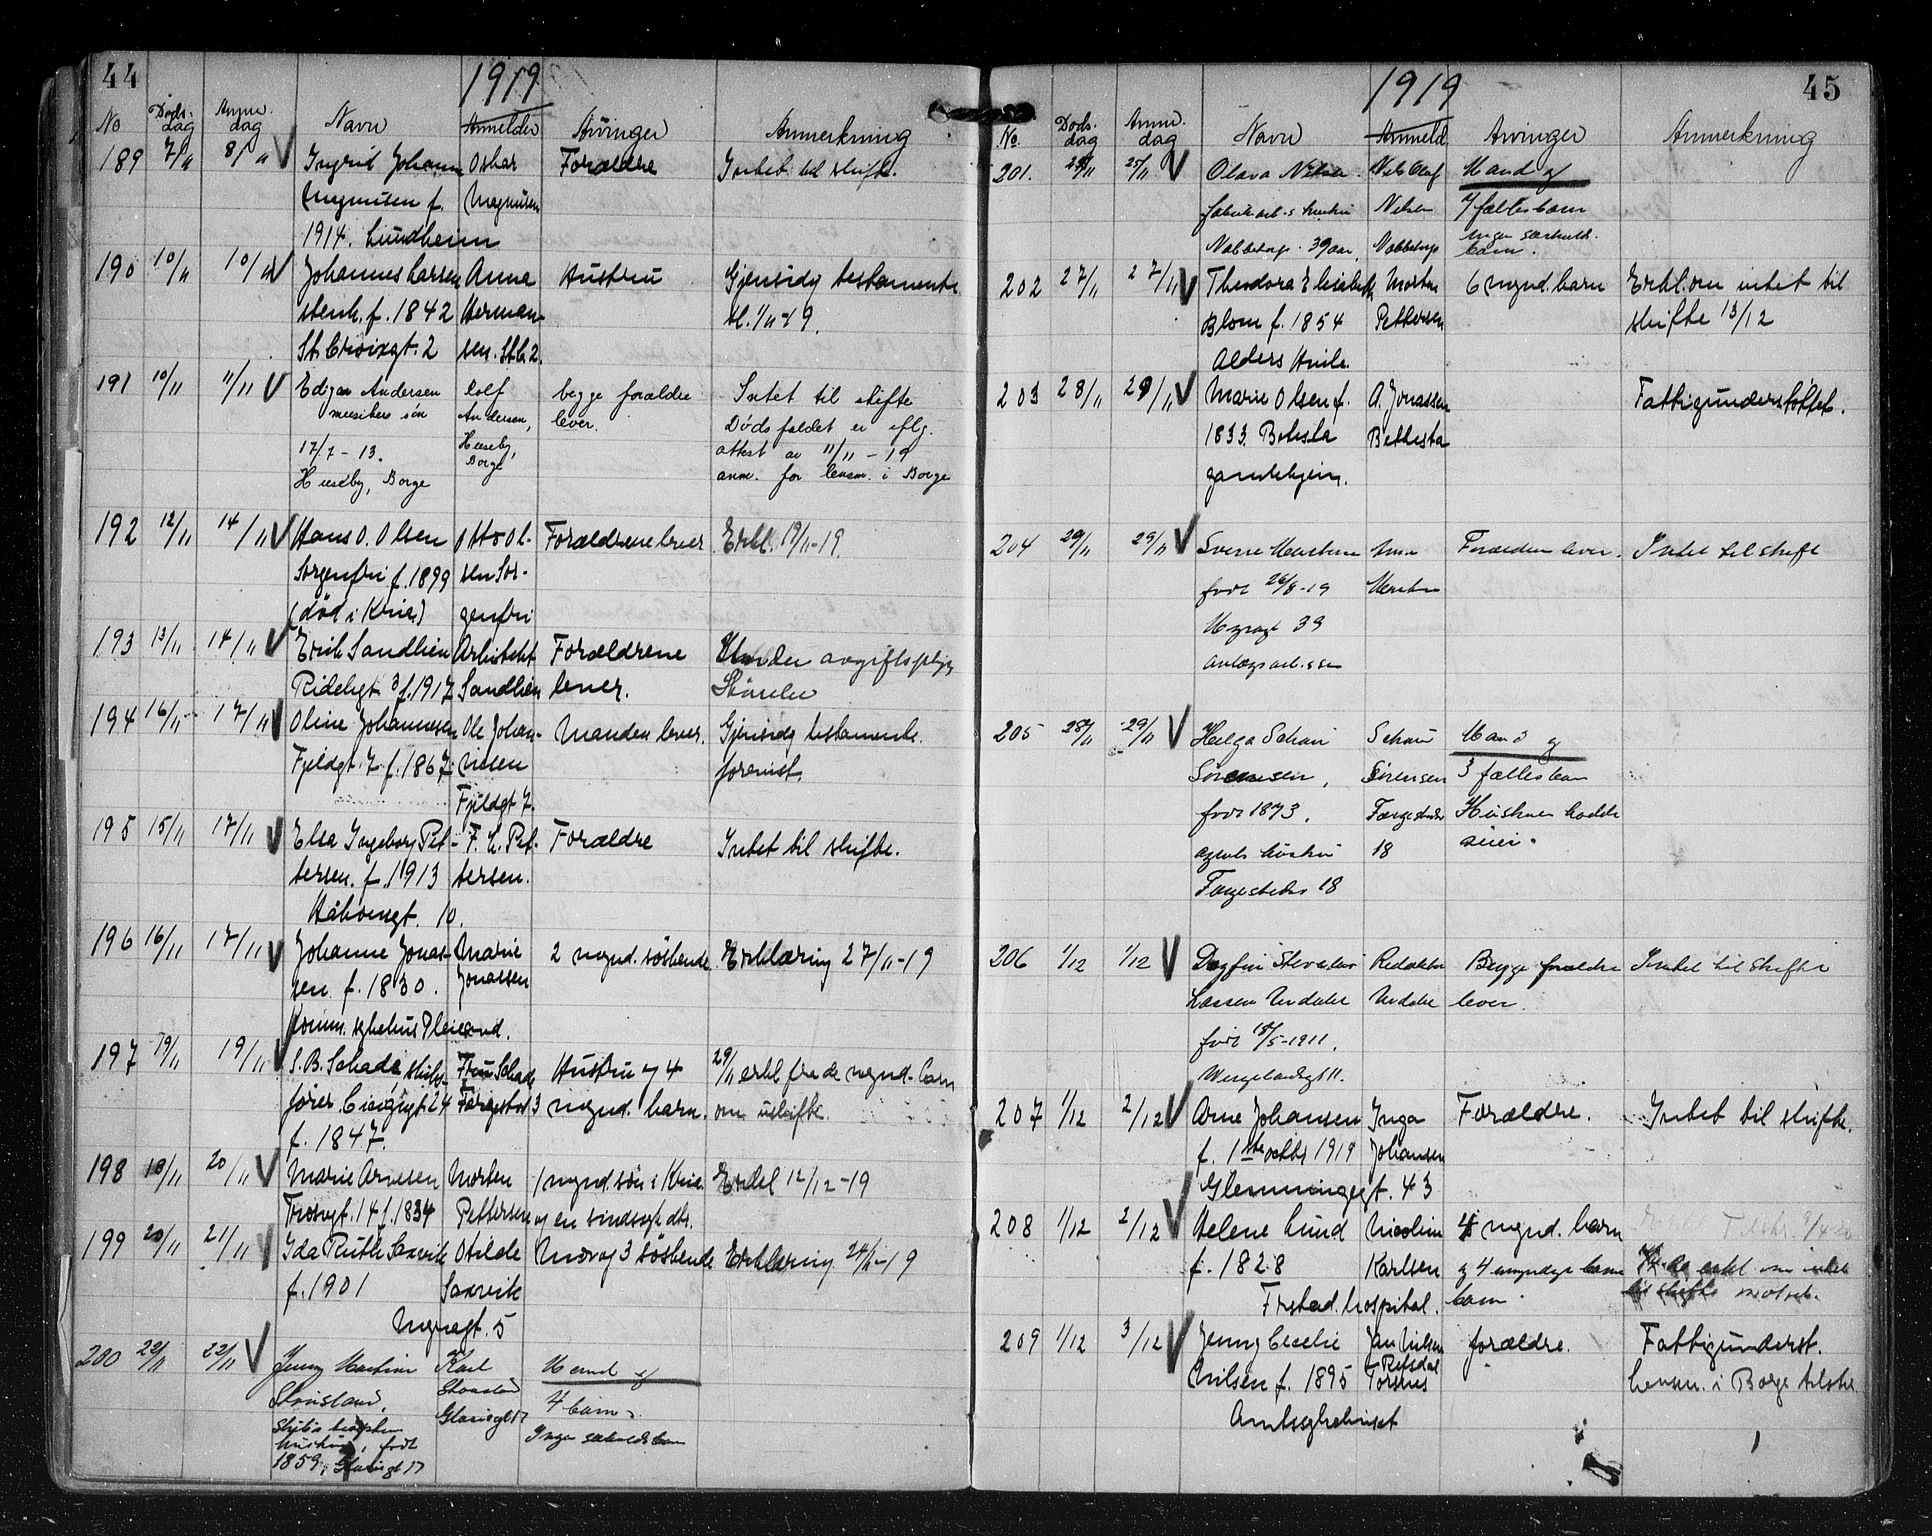 44
1919
No Døds-dag Anm.dag Navn Anmelder Arvinger Anmerkning
189 7/11 8/11 V Ingrid Johanne Oskar Forældre Intet til skifte.
Magnusen f. Magnusen
1914. Lundheim
190 10/11 10/11 V Johannes Larsen Anna Hustru Gjensidig testamente
stenh. f. 1842 Herman-
St. Croixgt. 2 sen. St.C. 2.
191 10/11 11/11 V Edgar Andersen Rolf begge forældre Intet til skifte
Andersen, lever. Dødsfaldet er iflg.
17/7-13. Huseby, attest av 11/11-19
Huseby, Borge Borge anm. for lensm. i Borge
192 12/11 14/11 V Hans O. Olsen Otto Ol- Forældrene lever Erkl. 19/11-19.
Sorgenfri f. 1899 sen Sor-
(død i Kria) genfri
193 13/11 14/11 V Erik Sandlien Arkitekt Forældrene Under avgiftspligtig
Ridehgt 3 f. 1917 Sandlien lever. Størrelse
194 16/11 17/11 V Oline Johannesen Ole Johan- Manden lever. Gjensidig testamente
Fjeldgt. 7. f. 1867. nesen forevist.
Fjeldgt 7.
195 15/11 17/11 V Elsa Ingeborg Pet- F. L. Pet- Forældre Intet til skifte.
tersen. f. 1913 tersen.
Håkonsgt. 10.
196 16/11 17/11 V Johanne Jonas- Marie 2 mynd. søskende. Erklæring 27/11-19
sen f. 1830. Jonassen
Komm. sykehus Pleieand.
197 19/11 19/11 V S. B. Schade, skibs- Fru Schade Hustru og 4 29/11 erkl fra de mynd. barn
fører Cicigngt. 24 Færgestad 3 mynd. barn. om uskifte.
f. 1847.
198 18/11 20/11 V Marie Arnesen Morten 1 mynd. søn i Kria. Erkl 12/12-19
Trosvgt. 14 f. 1834 Pettersen og en sindssyk dtr.
199 20/11 21/11 V Ida Ruth Saxvik Otilde Mor og 3 søskende Erklæring 24/11-19
f. 1901 Saxvik
Nygaagt. 5
200 22/11 22/11 V Jenny Martine Karl Mand og
4 barn.
Hustru, født Ingen særkuldsbarn
1859, Glasigt 17
45
1919
No. Døds-dag Anm.dag Navn Anmeld Arvinger Anmerkning
201. 25/11 V Olava Nilsen Nils Olaf Mand og
fabrikarb.s hustru Nilsen 7 fællesbarn
Nabbetorp. 39 aar. Nabbetorp Ingen særkulds-
barn.
202 27/11 27/11 V Theodora Elisabeth Morten 6 mynd. barn Erkl. om intet til
Blom f. 1854 Pettersen skifte 13/12
Alders Hvile.
203 28/11 29/11 V Marie Olsen f. A. Jonassen Fattigunderstøttet.
1833. Betesta Bethesta
gamlehjem.
204 29/11 29/11 V Sverre Forældrene lever. Intet til skifte
født 26/8-19
39
205 28/11 29/11 V Helga Schau Schau Mand og
Sørensen, Sørensen 3 fællesbarn
født 1873. Færgestedet Hustruen hadde
agents hustru 18 særeie.
Færgestedet 18
206 1/12 1/12 V Dagfin Redaktør Begge forældre Intet til skifte
Larsen Undahl Undahl lever.
født 18/5-1911.
Wergelandsgt 11.
207 1/12 2/12 V Arne Johansen Inga Forældre. Intet til skifte.
f. 1ste oktbr 1919 Johansen
Glemmingegt. 43
208 1/12 2/12 V Helene Lund Nicoline 4 mynd. barn
f. 1828 Karlsen og 4 umyndige barne-
Frstad. hospital. barn.
209 1/12 3/12 V Jenny Cecelie Jan Nilsen forældre. Fattigunderst.
Nilsen f. 1895 Refsdal Torsnes Lensm. i Borge
Amtssykehuset